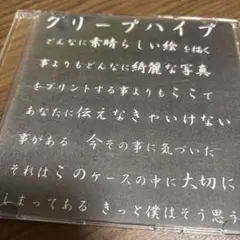 グリープハイプ
どんなに素晴らしい絵を描く
事よりもどんなに綺麗な写真
をプリントする事よりもここで
あなたに伝えなきゃいけない
事がある 今その事に気づいた
それはこのケースの中に大切に
しまってある きっと僕はそう思う